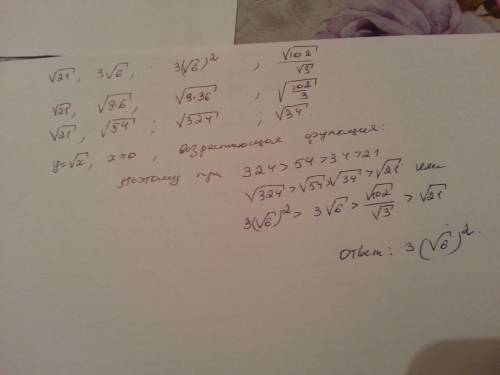 √21, 3√6, 3(√6)², √102/√3
√21, √9·6, √9·36, √102/3
√21, √54; √324, √34.
y=√x, x≥0, возрастающая функция:
Поэтому при 324>54>34>21
√324>√54>√34>√21 или
3(√6)²>3√6>√102/√3>√21
Ответ: 3(√6)².